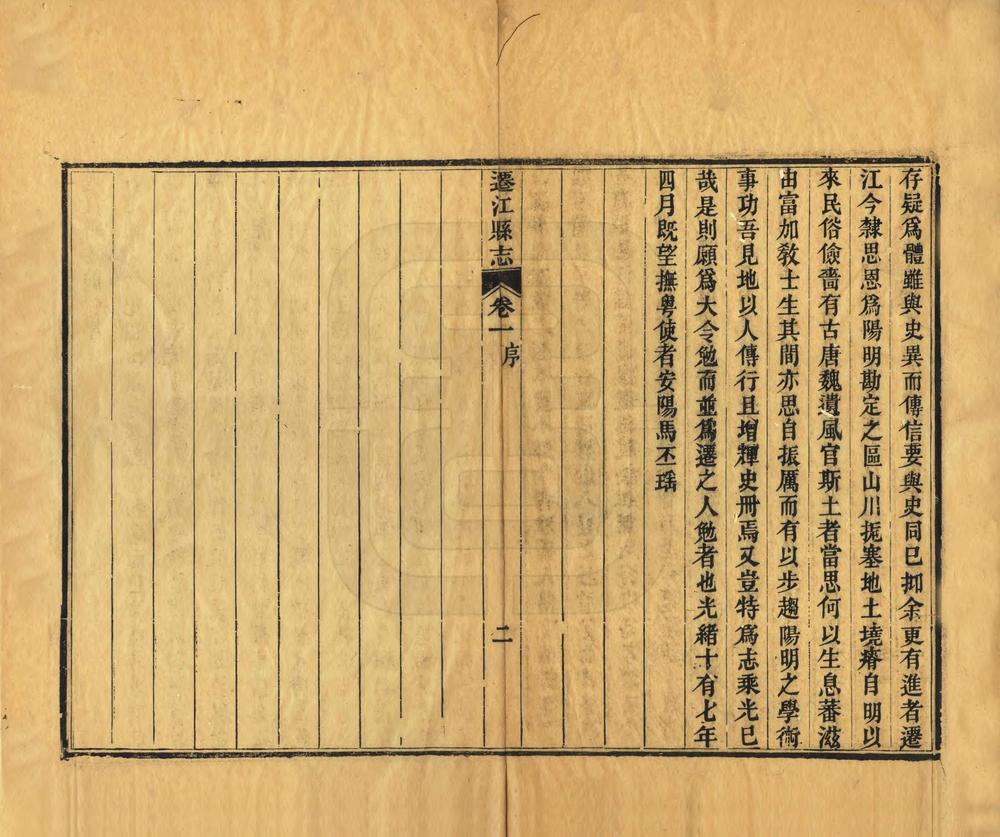 存疑爲體雖與史異而傳信要與史同巳抑余更有進者遷
江今隸思恩爲陽明勘定之區山川扼塞地土墝瘠自明以
來民俗儉嗇有古唐魏遺風官斯土者當思何以生息蕃滋
由富加敎士生其間亦思自振厲而有以步趨陽明之學術
事功吾見地以人傳行且增輝史冊焉又豈特爲志乘光巳
哉是則願爲大令勉而並爲遷之人勉者也光緒十有七年
四月既望撫粵使者安陽馬丕瑶
遷江縣志
卷一
序
二